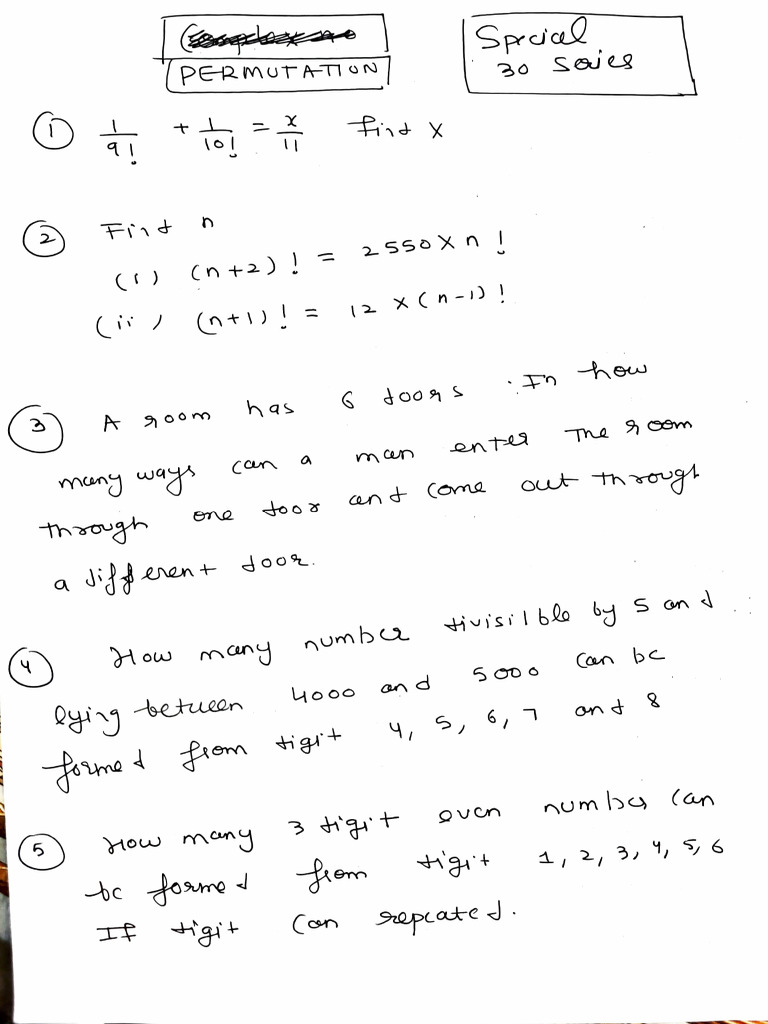 PERMUTATION
Special
30 Series
① 1/9! + 1/10! = x/11 find x
② Find n
(i) (n+2)! = 2550 × n!
(ii) (n+1)! = 12 × (n-1)!
③ A room has 6 doors. In how
many ways can a man enter the room
through one door and come out through
a different door.
④ How many number divisilble by 5 and
lying between 4000 and 5000 can be
formed from digit 4, 5, 6, 7 and 8
⑤ How many 3 digit even number can
be formed from digit 1, 2, 3, 4, 5, 6
If digit can repeated.